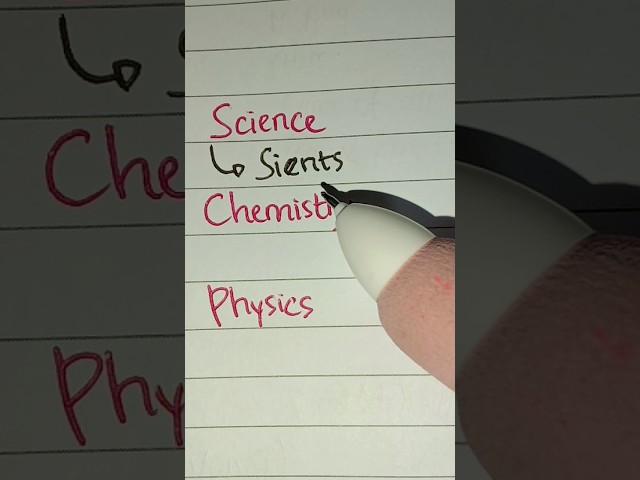 Science
↳ Sients
Chemist
Physics